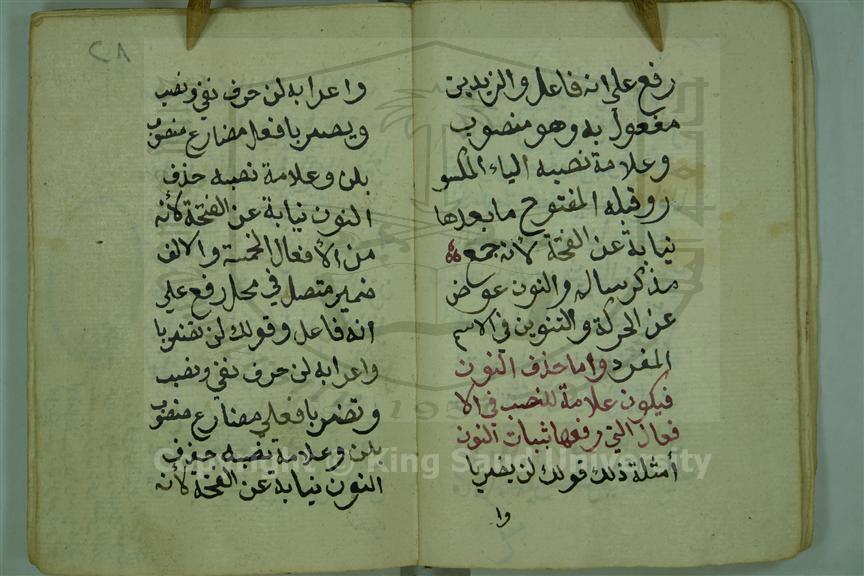 رفع على انه فاعل والزيدين
مفعول به وهو منصوب
وعلامة نصبه الياء المكسو
ر وقبله المفتوح ما بعدها
نيابة عن الفتحة لأنه جمع
مذكر سالم والنون عوض
عن الحركة والتنوين فى الاسم
المفرد واما حذف النون
فيكون علامة للنصب فى الا
فعال التى رفعها بثبات النون
أمثلة ذلك قولك لن يضربا
وا
٢٨
واعرابه لن حرف نفي ونصب
ويضربا فعل مضارع منصوب
بلن وعلامة نصبه حذف
النون نيابة عن الفتحة لأنه
من الأفعال الخمسة والالف
ضمير متصل في محل رفع على
انه فاعل وقولك لن تضربا
واعرابه لن حرف نفي ونصب
وتضربا فعل مضارع منصوب
بلن وعلامة نصبه حذف
النون نيابة عن الفتحة لأنه
Copyright © King Saud University